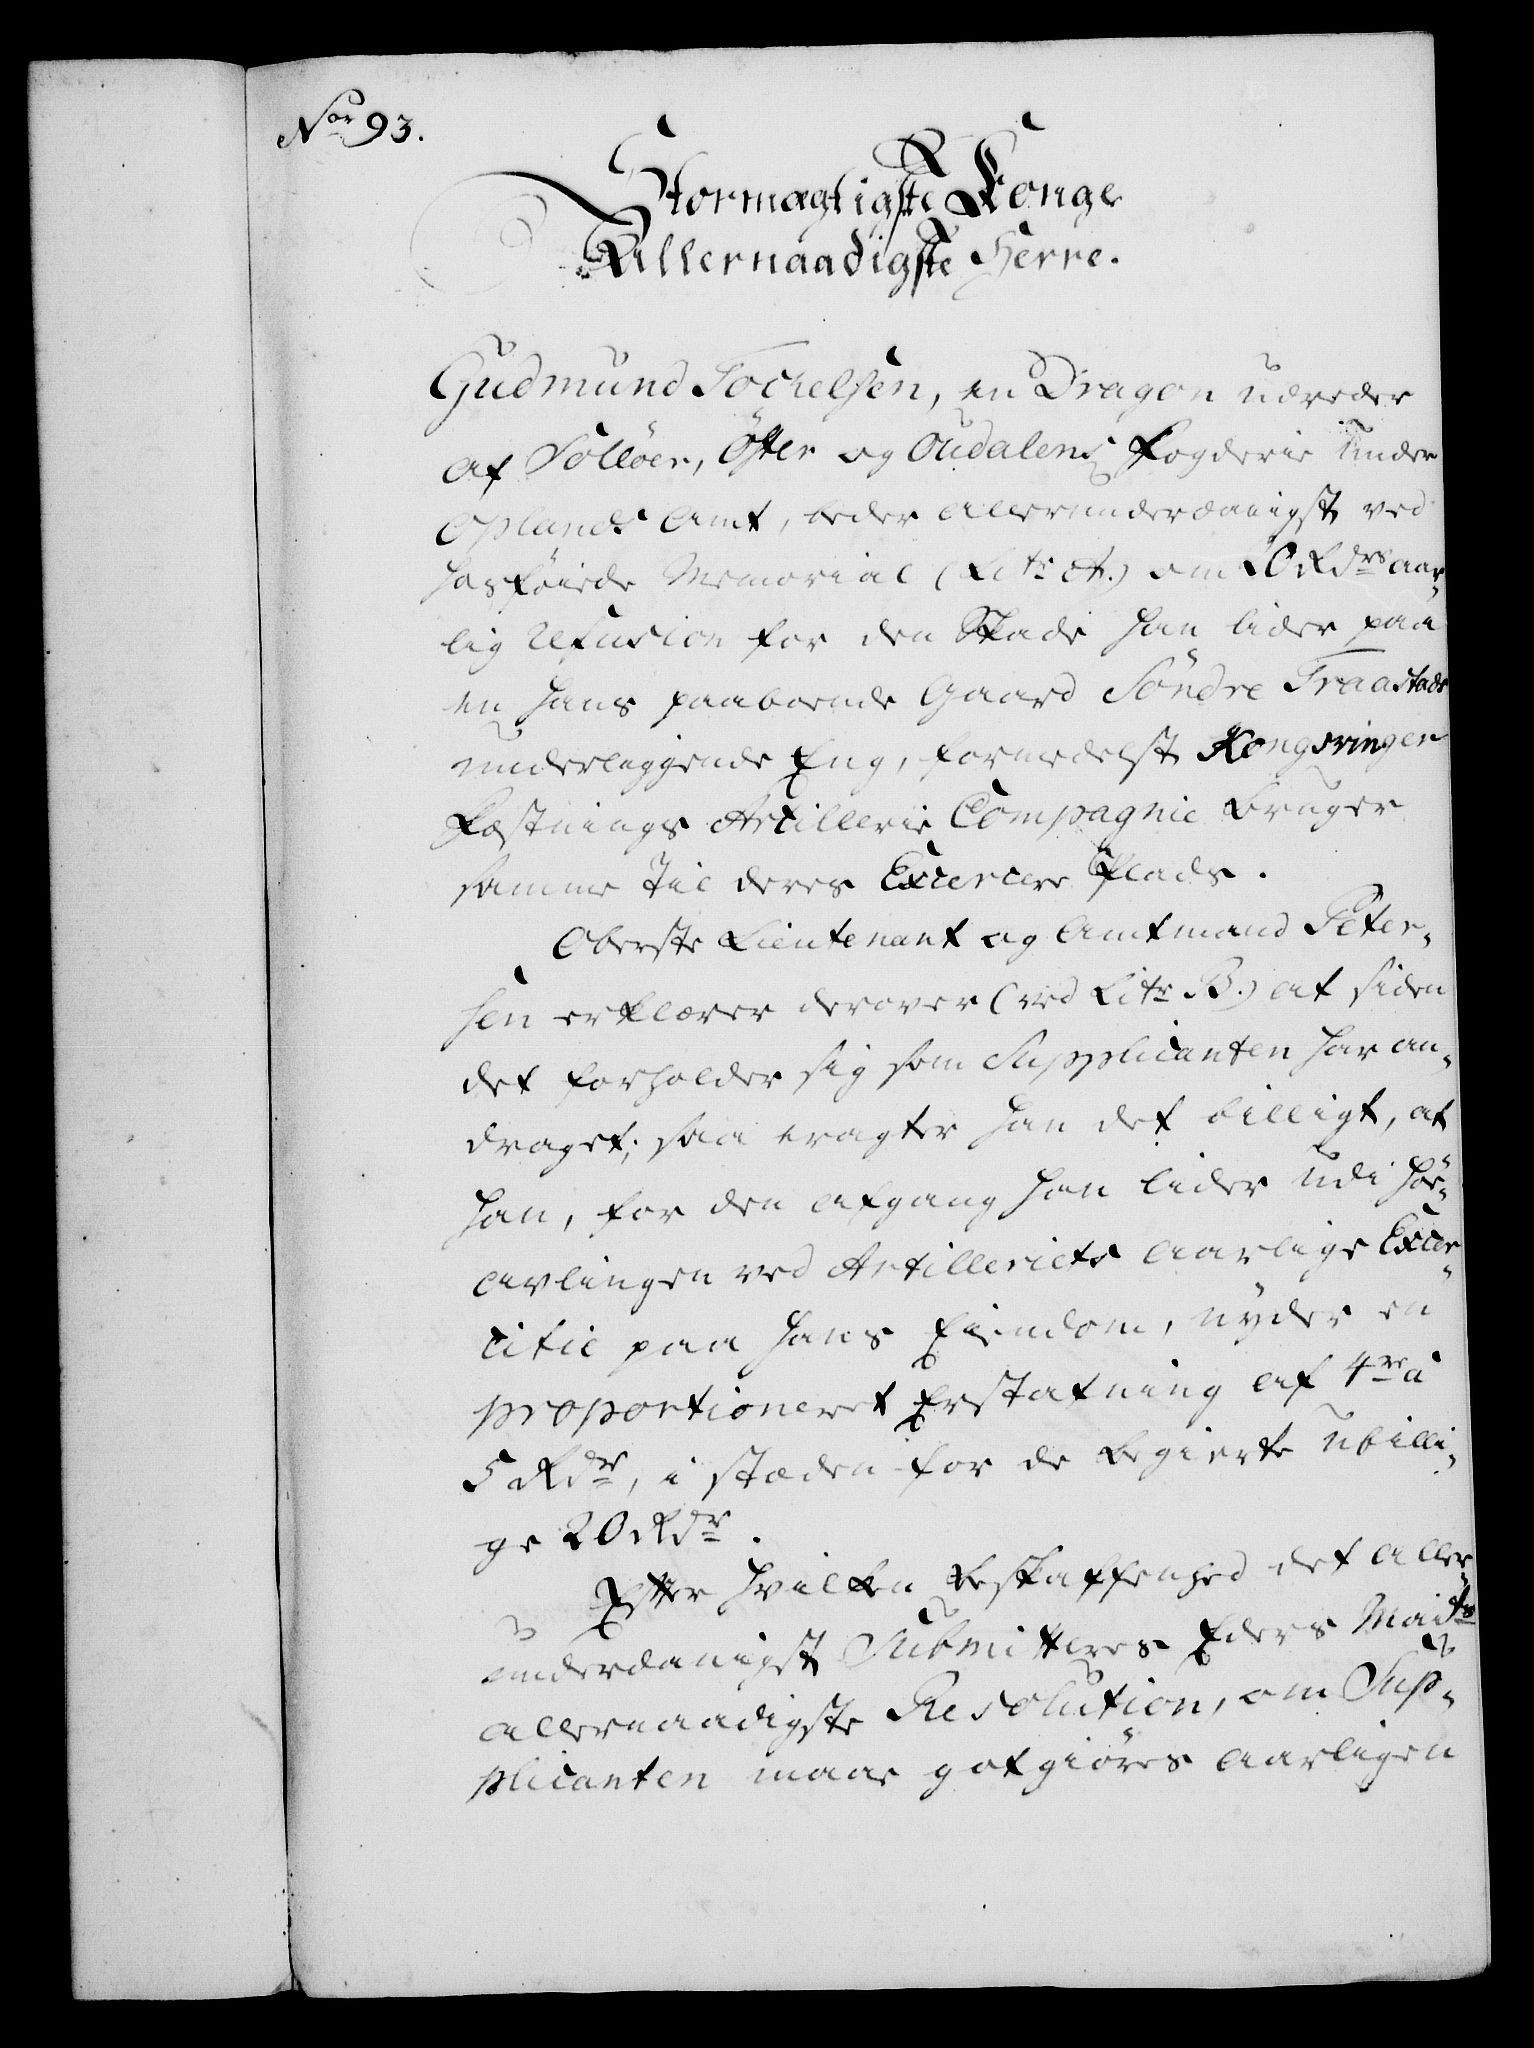 Nor 93.
Stormægtigste Konge
Allernaadigste Herre.
Gudmund Tockelsen, en Dragon udreder
af Solløer, Öster og Oudalens Fogderie under
Oplands Amt, beder allerunderdanigst ved
hosføiede Memorial (Litr A.) om 20 Rdrs aar-
lig Refusion for den Skade han lider paa
en hans paaboende Gaard Söndre Traastads
underliggende Eng, formedelst Kongsvinger
Fæstnings Artillerie Compagnie bruger
samme til deres Excercere Plads.
Oberste Lieutenant og Amtmand Peter-
sen erklærer derover (ved Litr B.) at siden
det forholder sig som Supplicanten har an-
draget; saa eragter han det billigt, at
han, for den afgang han lider udi Höe-
avlingen ved Artilleriets aarlige Excer-
citie paa hans Eiendom, nÿder en
proportioneret Erstatning af 4re à
5 Rdr, i stæden for de begierte ubilli-
ge 20 Rdr.
Efter hvilken beskaffenhed det aller-
underdanigst Submitteres Eders Maits
allernaadigste Resolution, om Sup-
plicanten maae gotgiöres aarligen